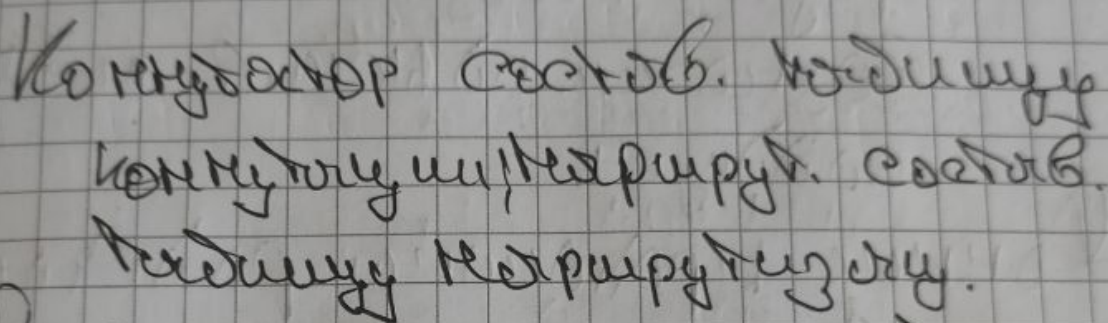 Коммутатор состав. таблицу
коммутации, маршрут. состав.
таблицу маршрутизации.